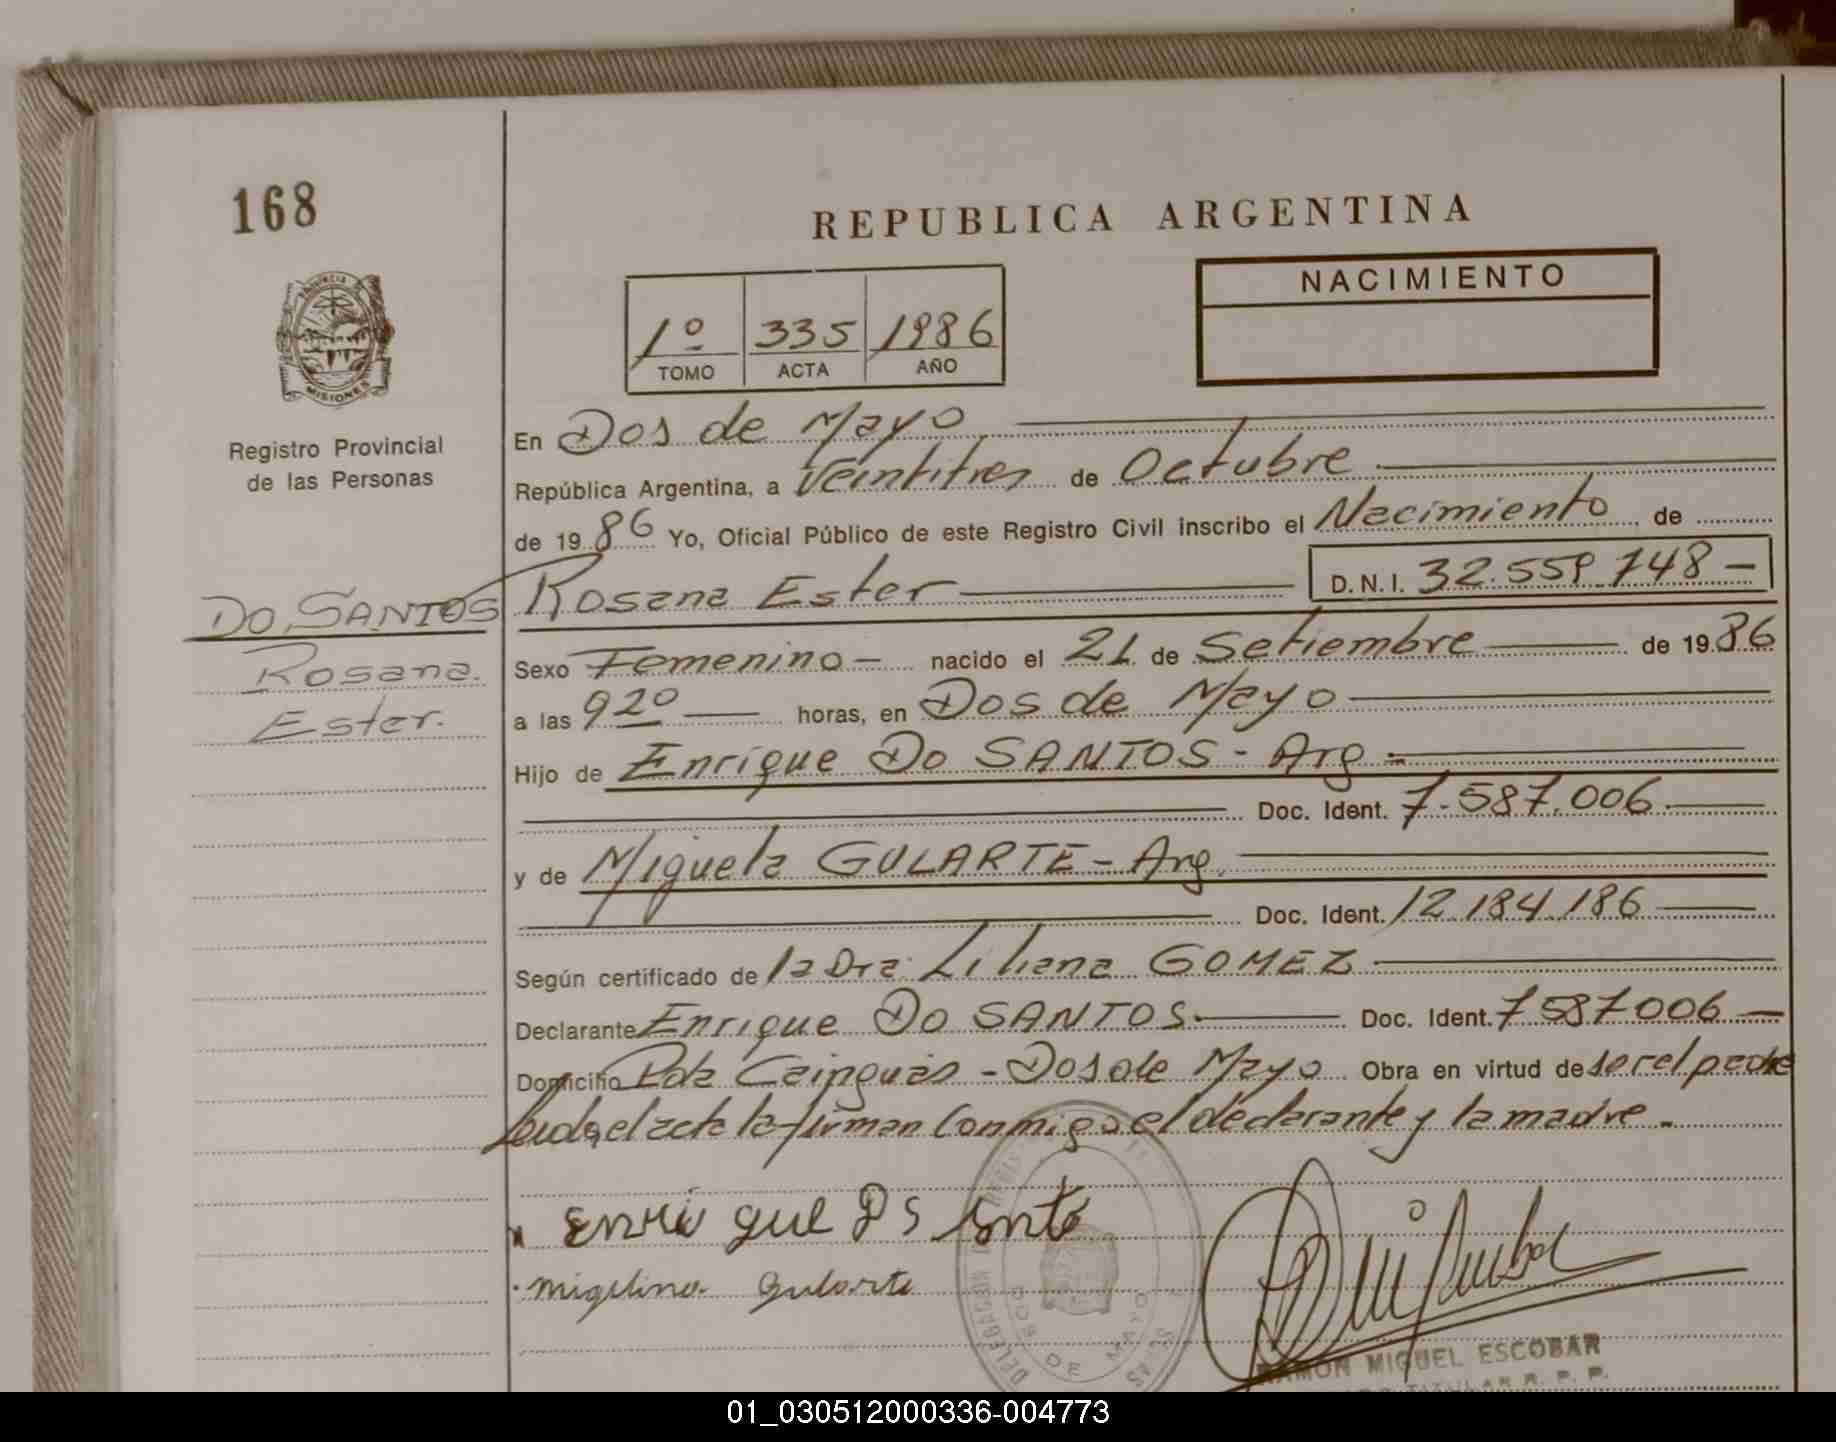 168
REPUBLICA ARGENTINA
PROVINCIA DE
MISIONES
Registro Provincial
de las Personas
1º 335 1986
TOMO ACTA AÑO
NACIMIENTO
En Dos de Mayo
República Argentina, a Veintitres de Octubre
de 1986 Yo, Oficial Público de este Registro Civil inscribo el Nacimiento de
DO SANTOS Rosana Ester D.N.I. 32.559.748-
Rosana.
Ester.
Sexo Femenino- nacido el 21 de Setiembre de 1986
a las 9 20 horas, en Dos de Mayo
Hijo de Enrique Do SANTOS - Arg -
Doc. Ident. 7.587.006
y de Miguela GULARTE - Arg.
Doc. Ident. 12.184.186
Según certificado de la Dra. Liliana GOMEZ
Declarante Enrique Do SANTOS Doc. Ident. 7587006
Domicilio Pda Cainguás - Dos de Mayo Obra en virtud de ser el padre
Leida, el acta la firman conmigo el declarante y la madre.
Enri que
migelina Gularte
DELEGACION
DOS DE MAYO
RAMON MIGUEL ESCOBAR
TITULAR R. P. P.
01_030512000336-004773